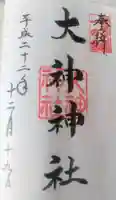 奉拝
大神神社
平成二十二年
十二月十九日